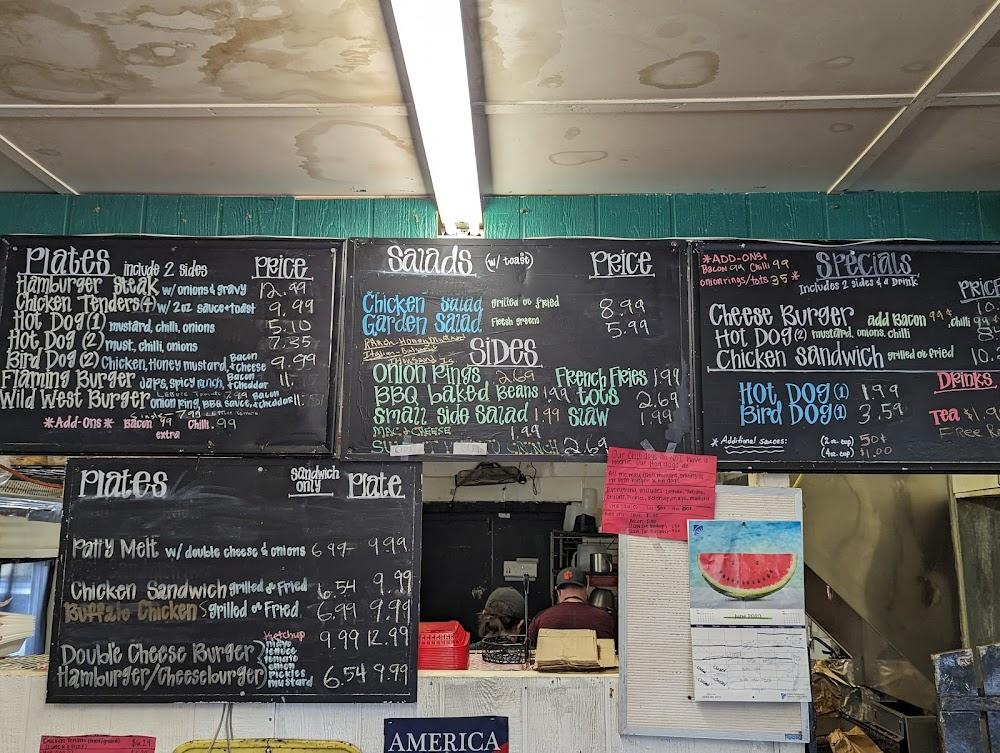 Plates include 2 sides PRICE
Hamburger Steak w/ onions & gravy 12.99
Chicken Tenders (4) w/ 2oz sauce + toast 9.99
Hot Dog (1) mustard, chilli, onions 5.10
Hot Dog (2) must, chilli, onions 7.35
Bird Dog (2) Chicken, Honey mustard, Bacon + cheese 9.99
Flaming Burger Japs, spicy ranch, Bacon + cheddar 11.
Wild West Burger onion ring, BBQ sauce, Bacon + cheddar
*Add-Ons* Bacon 99 Chilli .99
extra
Salads (w/ toast) PRICE
Chicken Salad grilled or fried 8.99
Garden Salad Fresh greens 5.99
Ranch-Honey Mustard
Italian-
SIDES
Onion Rings 2.69 French Fries 1.99
BBQ Baked Beans 1.99 tots 2.69
Small side Salad 1.99 Slaw 1.99
Mac & Cheese 1.99
2.69
*ADD-ONS*
Bacon 99 Chilli 99
onion rings/tots 35*
SPECIALS
Includes 2 sides & a Drink
PRICE
Cheese Burger add Bacon 99¢, chilli 99¢
Hot Dog (2) mustard, onions, chilli
Chicken Sandwich grilled or fried 10.
Hot Dog (1) 1.99
Bird Dog (1) 3.59
Drinks
Tea $1.9
Free Re
*Additional Sauces: (2oz cup) 50¢
(4oz cup) $1.00
Plates Sandwich only Plate
Patty Melt w/ double cheese & onions 6.99 9.99
Chicken Sandwich grilled or Fried 6.54 9.99
Buffalo Chicken grilled or Fried 6.99 9.99
Double Cheese Burger 9.99 12.99
Hamburger/Cheeseburger 6.54 9.99
Ketchup
mayo
lettuce
tomato
onion
pickles
mustard
June 2023
AMERICA